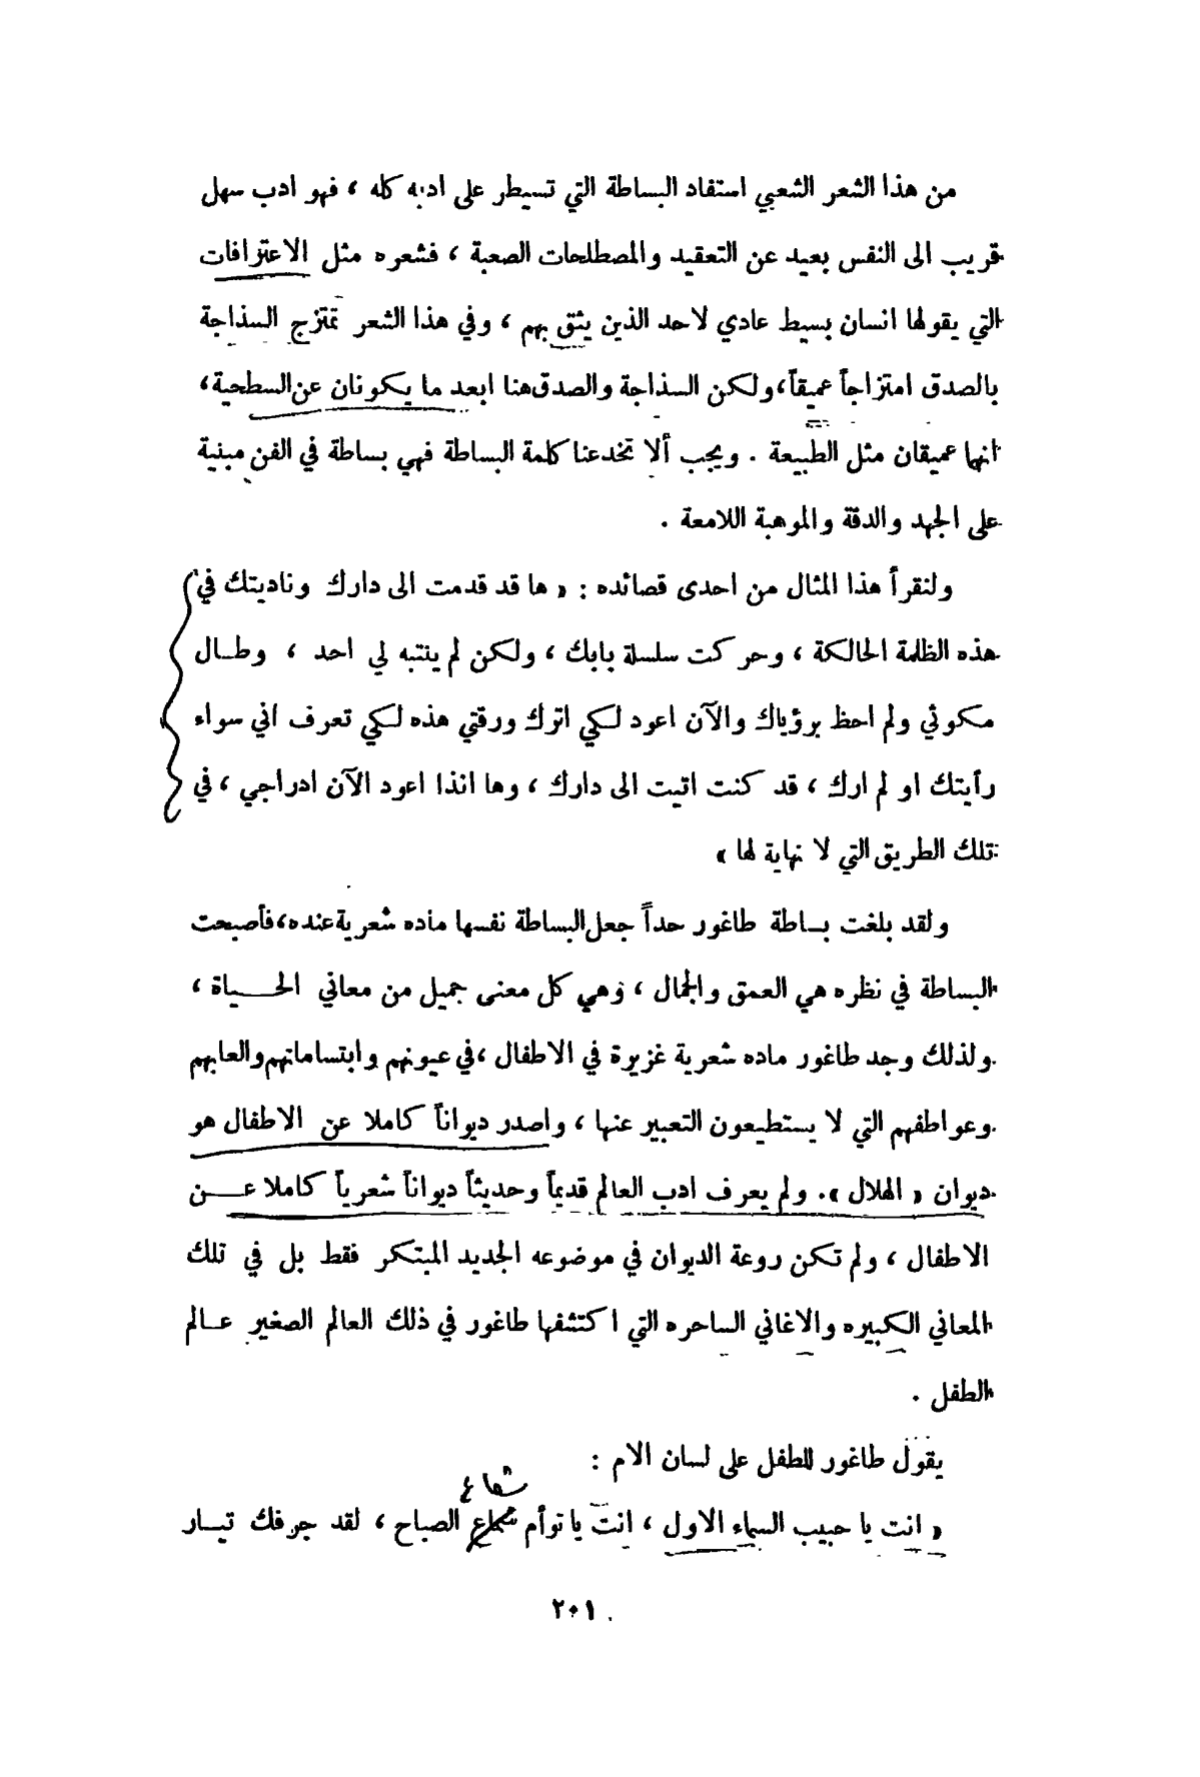 من هذا الشعر الشعبي استفاد البساطة التي تسيطر على ادبه كله ، فهو ادب سهل
قريب الى النفس بعيد عن التعقيد والمصطلحات الصعبة ، فشعره مثل الاعترافات
التي يقولها انسان بسيط عادي لاحد الذين يثق بهم ، وفي هذا الشعر تمتزج السذاجة
بالصدق امتزاجاً عميقاً، ولكن السذاجة والصدق هنا ابعد ما يكونان عن السطحية،
انهما عميقان مثل الطبيعة . ويجب ألا تخدعنا كلمة البساطة فهي بساطة في الفن مبنية
على الجهد والدقة والموهبة اللامعة .
ولنقرأ هذا المثال من احدى قصائده : « ها قد قدمت الى دارك وناديتك في
هذه الظلمة الحالكة ، وحركت سلسلة بابك ، ولكن لم ينتبه لي احد ، وطــال
مكوثي ولم احظ برؤياك والآن اعود لكي اترك ورقتي هذه لكي تعرف اني سواء
رأيتك او لم ارك ، قد كنت اتيت الى دارك ، وها انذا اعود الآن ادراجي ، في
تلك الطريق التي لا نهاية لها »
ولقد بلغت بــاطة طاغور حداً جعل البساطة نفسها ماده شعرية عنده، فأصبحت
البساطة في نظره هي العمق والجمال ، وهي كل معنى جميل من معاني الحـــياة ،
ولذلك وجد طاغور ماده شعرية غزيرة في الاطفال ، في عيونهم وابتساماتهم والعابهم
وعواطفهم التي لا يستطيعون التعبير عنها ، واصدر ديواناً كاملا عن الاطفال هو
ديوان « الهلال ». ولم يعرف ادب العالم قديماً وحديثاً ديواناً شعرياً كاملا عـــن
الاطفال ، ولم تكن روعة الديوان في موضوعه الجديد المبتكر فقط بل في تلك
المعاني الكبيره والاغاني الساحره التي اكتشفها طاغور في ذلك العالم الصغير عــالم
الطفل .
يقول طاغور للطفل على لسان الام :
شعاع
« انت يا حبيب السماء الاول ، انت يا توأم شماع الصباح ، لقد جرفك تيــار
٢٠١